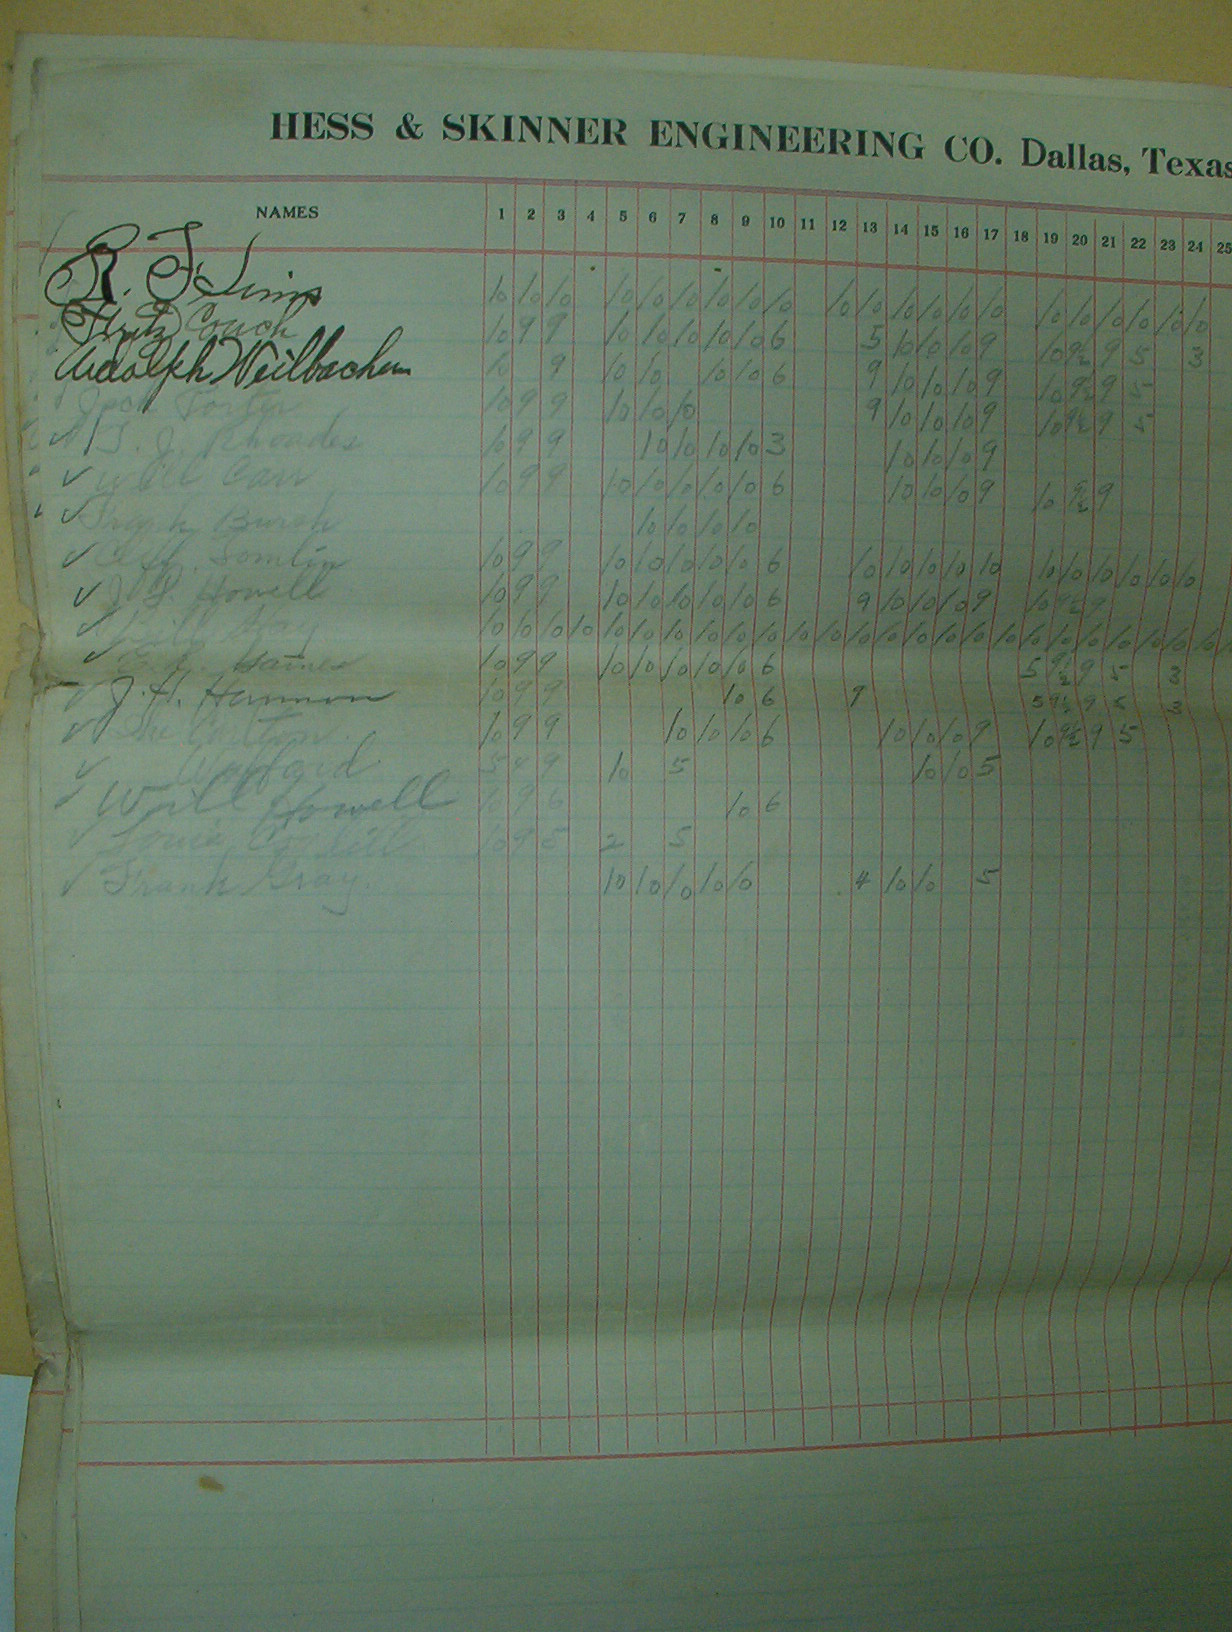 HESS & SKINNER ENGINEERING CO. Dallas, Texas
NAMES 1 2 3 4 5 6 7 8 9 10 11 12 13 14 15 16 17 18 19 20 21 22 23 24 25
R. F. Sims 10 10 10 10 10 10 10 10 10 10 10 10 10 10 10 10 10 10 10 10 10
Fritz Couch 10 9 9 10 10 10 10 10 6 5 10 10 10 9 10 9½ 9 5 3
Adolph Weilbacher 10 9 10 10 10 10 6 9 10 10 10 9 10 9½ 9 5
10 9 9 10 10 10 9 10 10 10 9 10 9½ 9 5
T. J. Rhoades 10 9 9 10 10 10 10 3 10 10 10 9
Will Carr 10 9 9 10 10 10 10 10 6 10 10 10 9 10 9½ 9
Frank Burch 10 10 10 10
Tomlin 10 9 9 10 10 10 10 10 6 10 10 10 10 10 10 10 10 10 10 10
Howell 10 9 9 10 10 10 10 10 6 9 10 10 10 9 10 9½ 9
10 10 10 10 10 10 10 10 10 10 10 10 10 10 10 10 10 10 10 10 10 10 10 10
Haines 10 9 9 10 10 10 10 10 6 5 9½ 9 5 3
J. H. Hermon 10 9 9 10 6 9 5 9½ 9 5 3
10 9 9 10 10 10 6 10 10 10 9 10 9½ 9 5
5 4 9 10 5 10 10 5
Will Howell 10 9 6 10 6
Louis 10 9 5 2 5
Frank Gray. 10 10 10 10 10 4 10 10 5